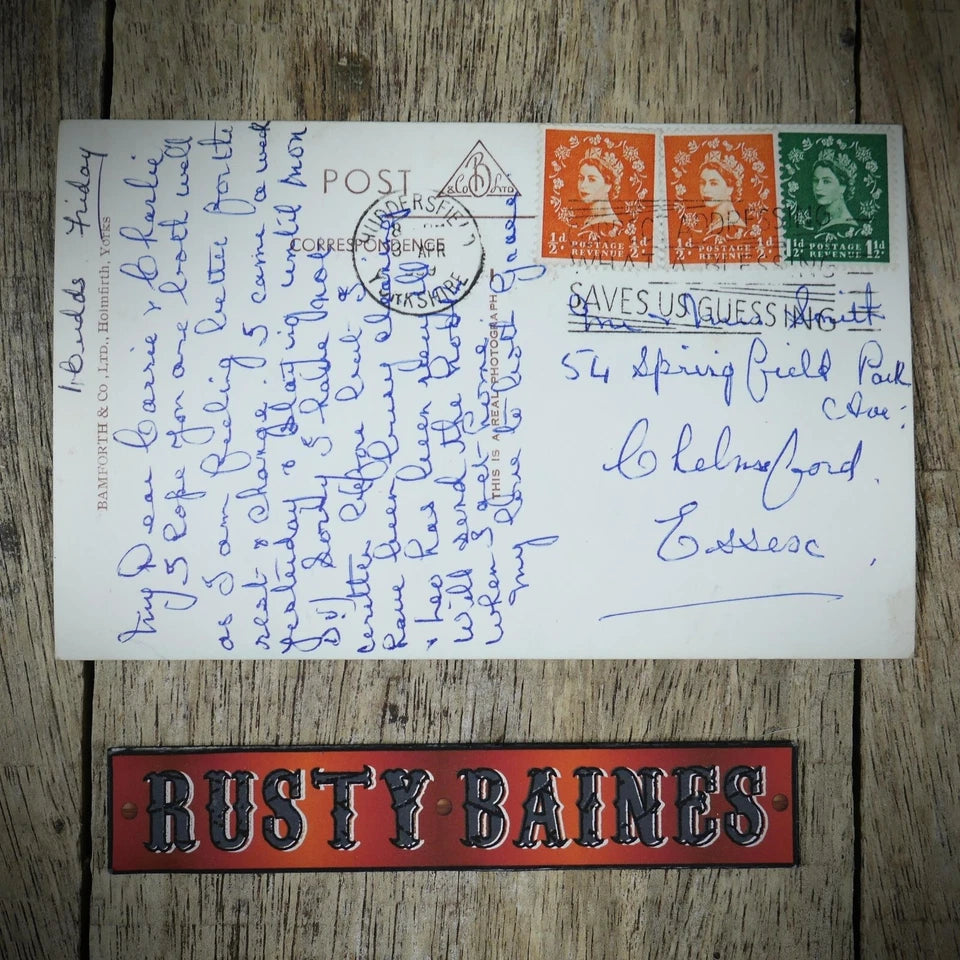 POST
B
& Co LTD
CORRESPONDENCE
BAMFORTH & CO., LTD., Holmfirth, Yorks
THIS IS A REAL PHOTOGRAPH
HUDDERSFIELD
8
APR
YORKSHIRE
½d ½d
POSTAGE
REVENUE
½d ½d
POSTAGE
REVENUE
1½d 1½d
POSTAGE
REVENUE
ADDRESSING
WHAT A BLESSING
SAVES US GUESSING
Friday
My Dear Carrie & Charlie
I hope you are both well
as I am feeling better for the
rest & change. I came a week
yesterday & staying until Mon
Sorry I have not
written before but I
have been busy
& Leo has been
Will send the
when I get home
My love to both
Mr & Mrs Smith
54 Springfield Park
Ave:
Chelmsford.
Essex,
RUSTY BAINES